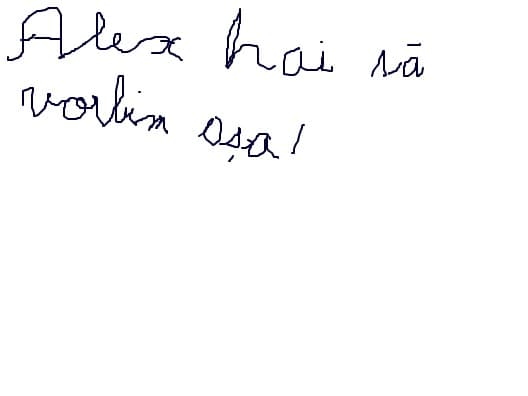 Alex hai să
vorbim așa!